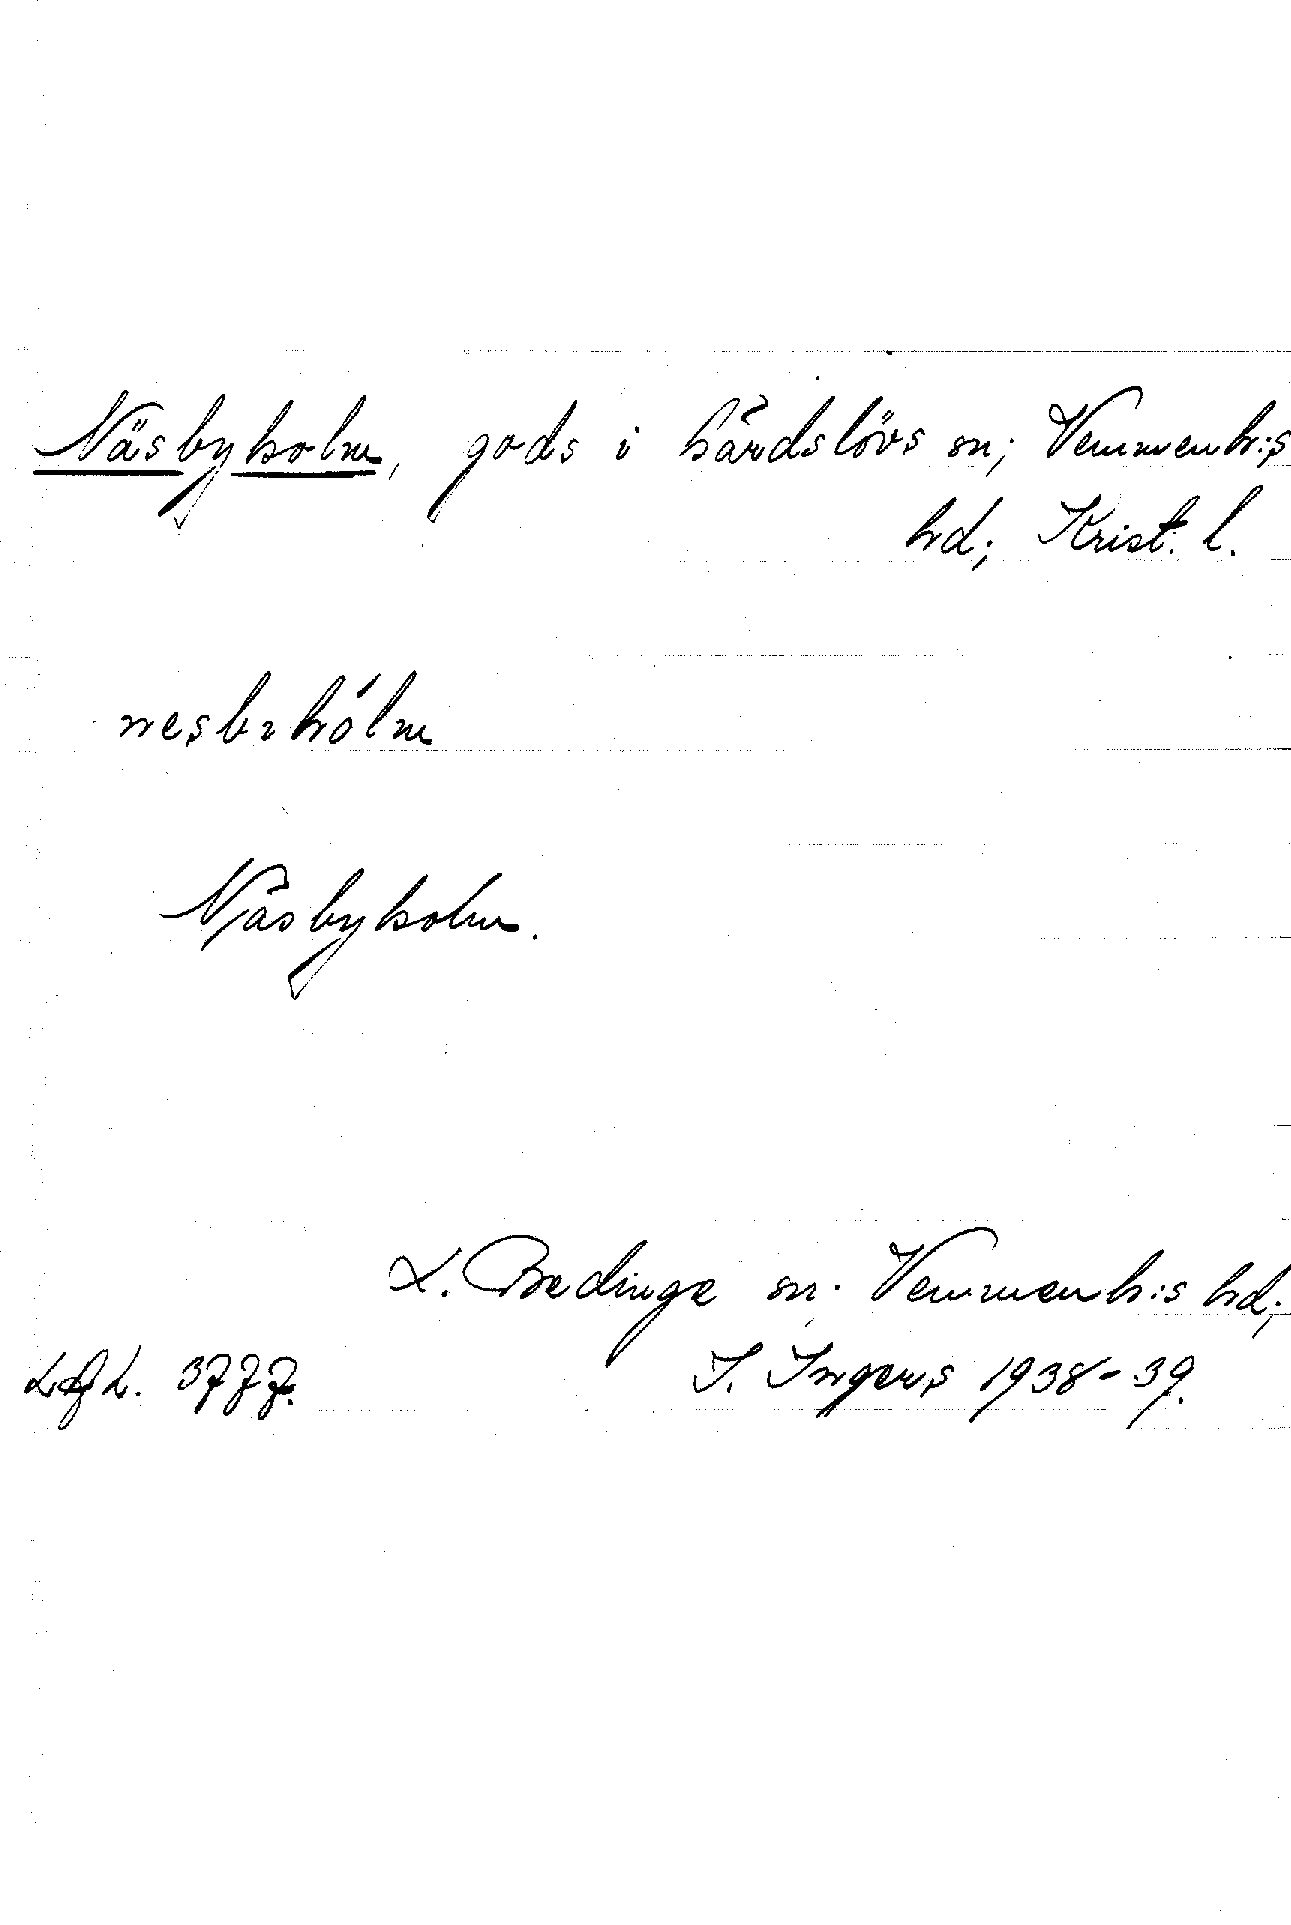 Näsbyholm, gods i Gärdslövs sn; Vemmenh:s
hd; Krist. l.
nesbıhólm
Näsbyholm.
L. Bedinge sn. Vemmenh:s hd;
LAL. 3777. I. Ingers 1938-39.